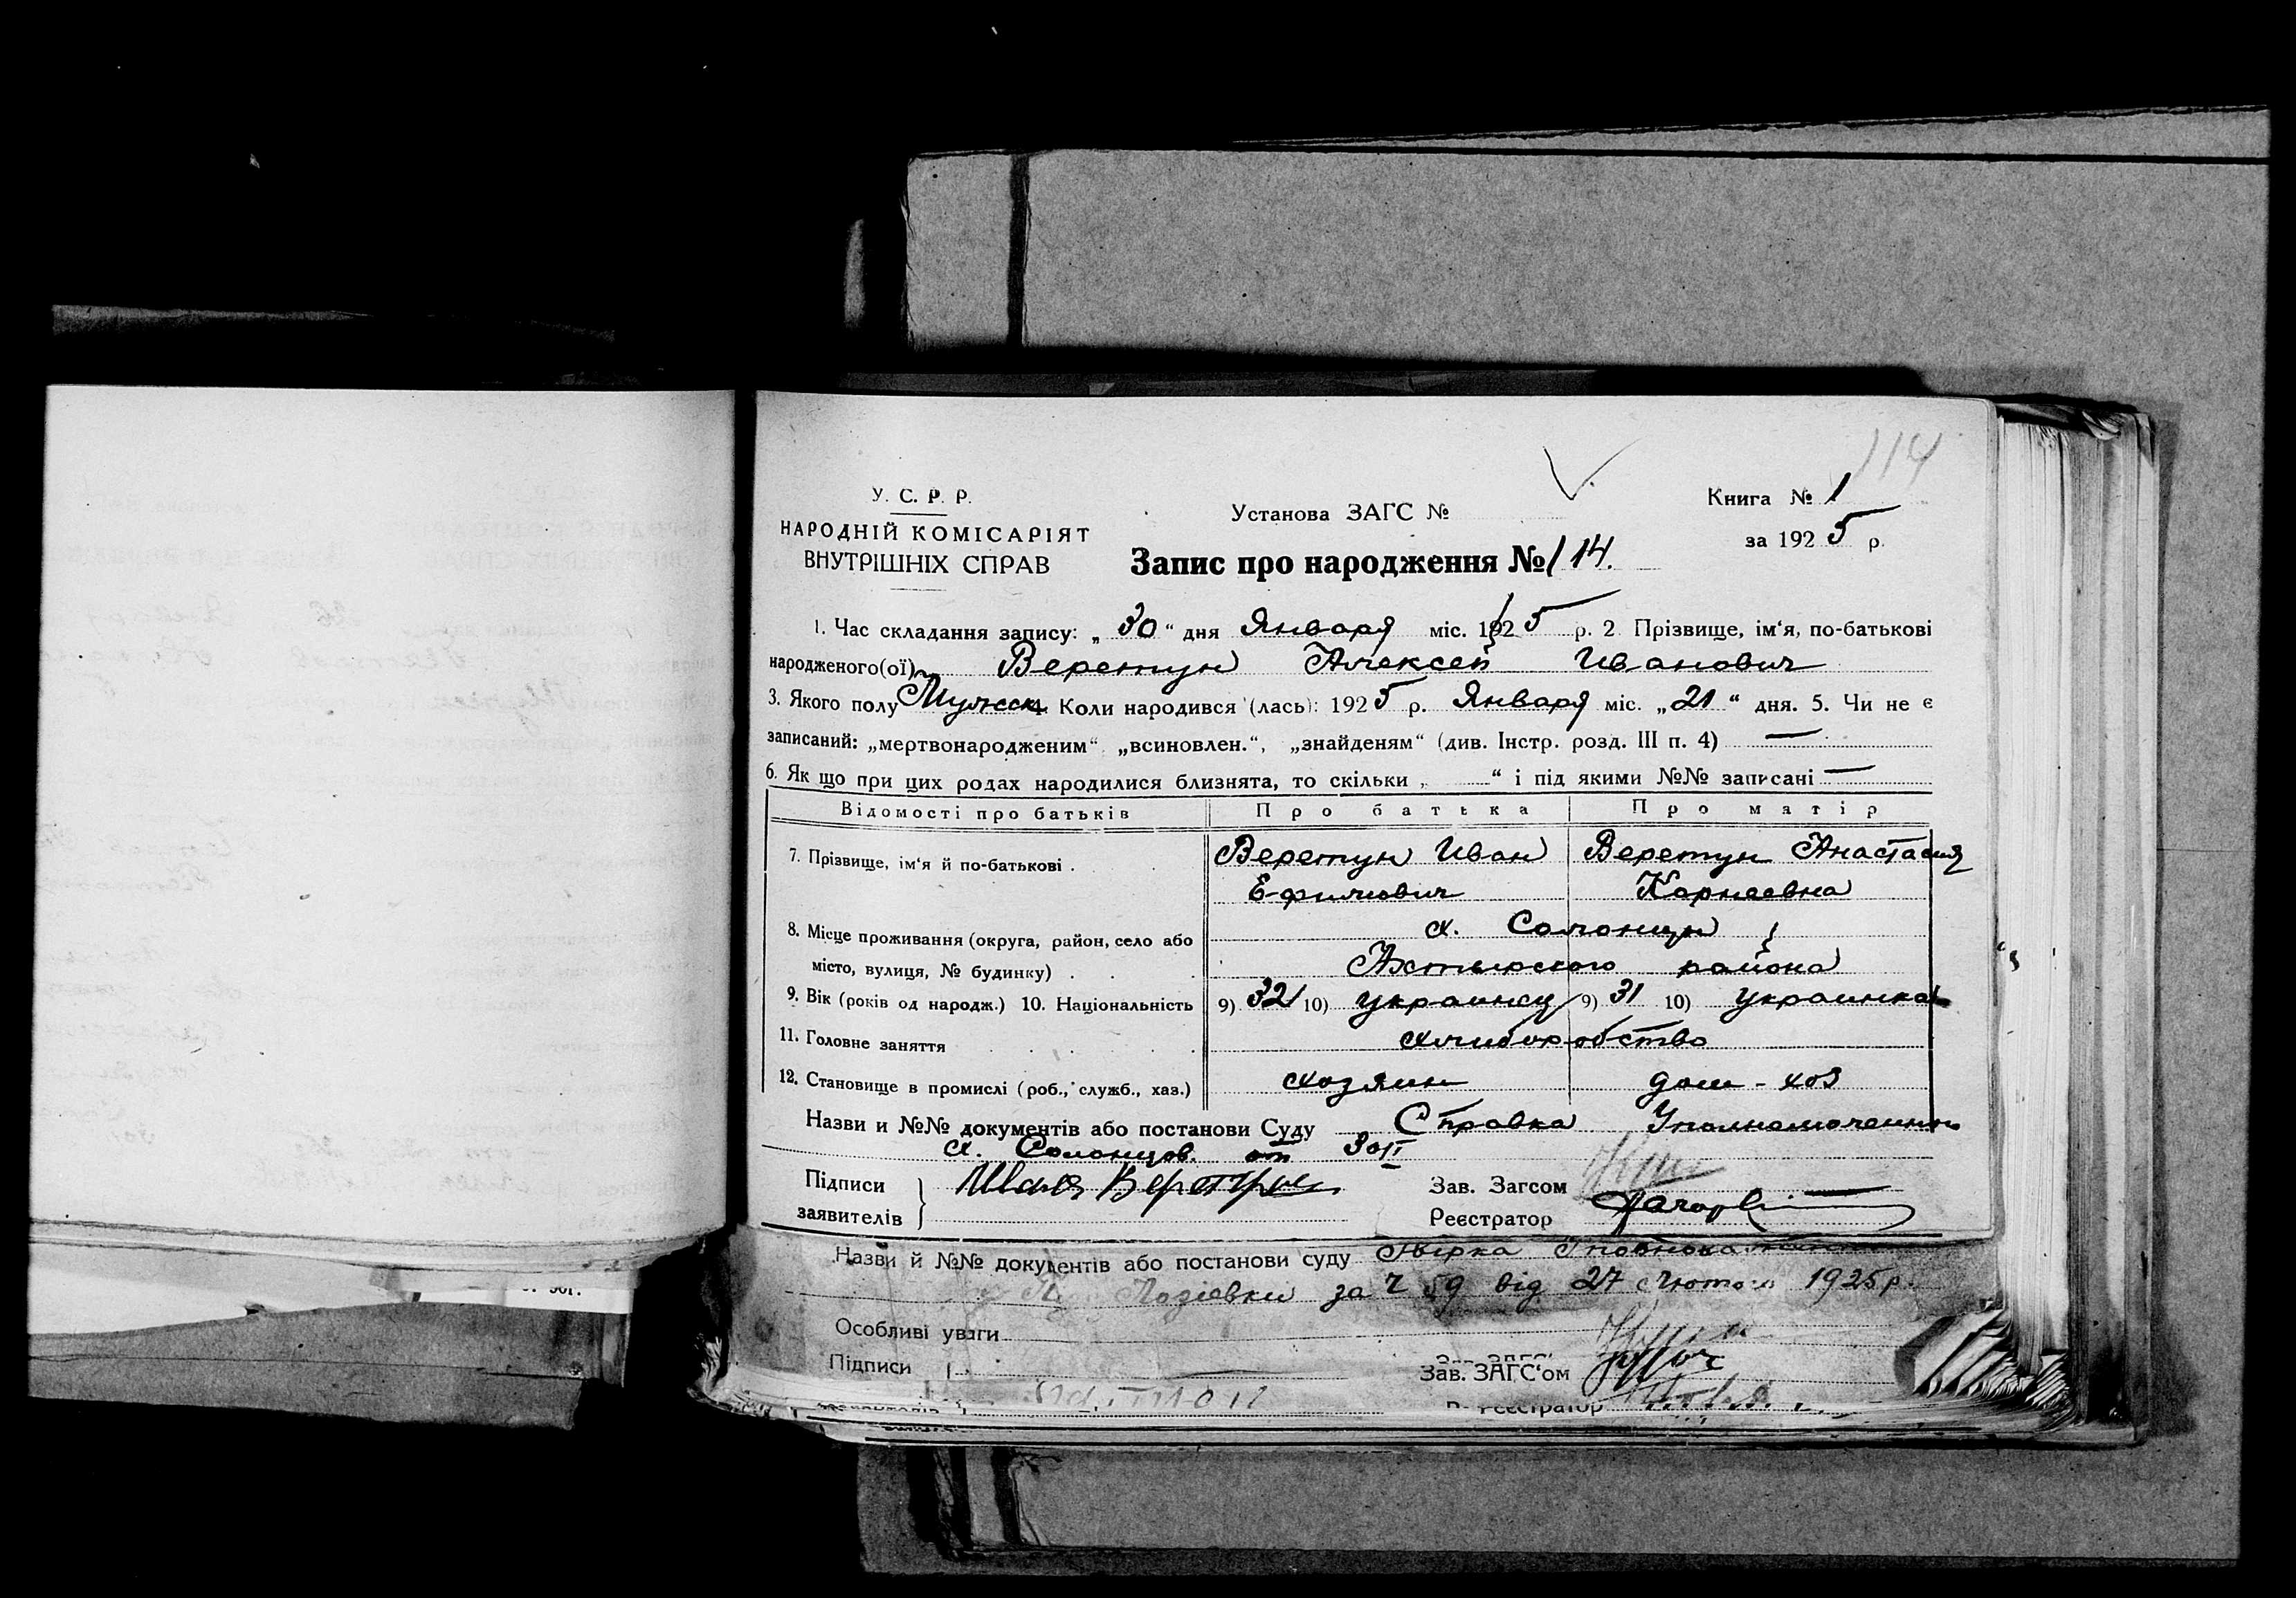 114
У. С. Р. Р.
НАРОДНІЙ КОМІСАРІЯТ
ВНУТРІШНІХ СПРАВ
Установа ЗАГС №
Книга № 1
за 1925 р.
Запис про народження № 114.
1. Час складання запису: „30“ дня Января міс. 1925 р. 2. Прізвище, ім‘я, по-батькові
народженого(ої) Веретун Алексей Иванович
3. Якого полу Мужск 4. Коли народився (лась): 1925 р. Января міс. „21“ дня. 5. Чи не є
записаний: „мертвонародженим“ „всиновлен.“, „знайденям“ (див. Інстр. розд. III п. 4) —
6. Як що при цих родах народилися близнята, то скільки „ “ і під якими №№ записані —
Відомості про батьків Про батька Про матір
7. Прізвище, ім‘я й по-батькові . Веретун Иван Веретун Анастасия
Ефимович Корнеевна
8. Місце проживання (округа, район, село або х. Солонцы
місто, вулиця, № будинку) . . . Ахтырского района
9. Вік (років од народж.) 10. Національність 9) 32 10) украинец 9) 31 10) украинка
11. Головне заняття хлиборобство
12. Становище в промислі (роб., служб., хаз.) хозяин дом-хоз
Назви и №№ документів або постанови Суду Справка Уполномоченного
х. Солонцов. от 30/I
Підписи заявителів Иван Веретун
Зав. Загсом
Реєстратор
Назви й №№ документів або постанови суду
Лозіевки за Ч 59 від 27 Лютого 1925 р.
Особливі уваги
Підписи
Зав. ЗАГС‘ом
Реєстратор